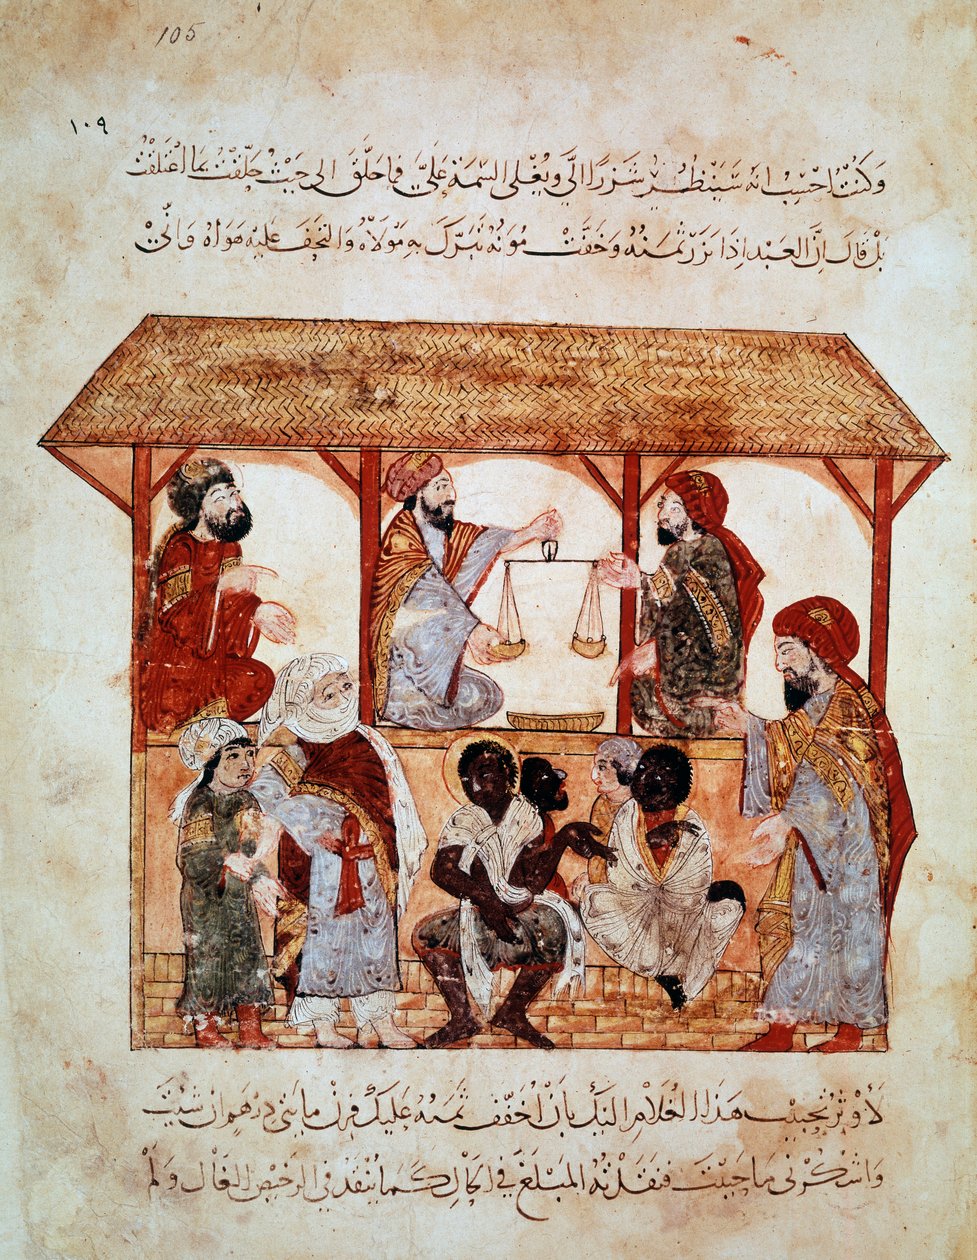 105
١٠٩
وَكُنْتُ احْسِبُ انه سَيَنْظُرُ شَزْرًا الَيَّ ويُغْلى السّمَةَ عَلَيَّ فما حَلَّقَ الى حَيْثُ حَلّقْتُ بما اعْتَلَقْتُ
بَلْ قالَ اِنَّ العَبْد اِذَا نَزَرَ ثمَنُهُ وَخَفّتْ مُوَنُهُ تَبَرَّكَ بهِ مَوْلَاهُ وَالتَحَفَ عَليْهِ هَوَاهُ وَاِنّي
لَأُوثِرُ تَحْبيْبَ هَذا الغُلَامِ اليْكَ بِانْ اُخَفِّفَ ثمَنهُ عليكَ فَزِنْ مايتَيْ دِرْهَم اِن شئِتَ
وَاشكُرْني مَا حَيِيْتَ فنَقَدْتُهُ المبْلَغَ في الحَالِ كَمَا يُنْقَدُ في الرّخِيْصِ الغَالِ وَلَمْ